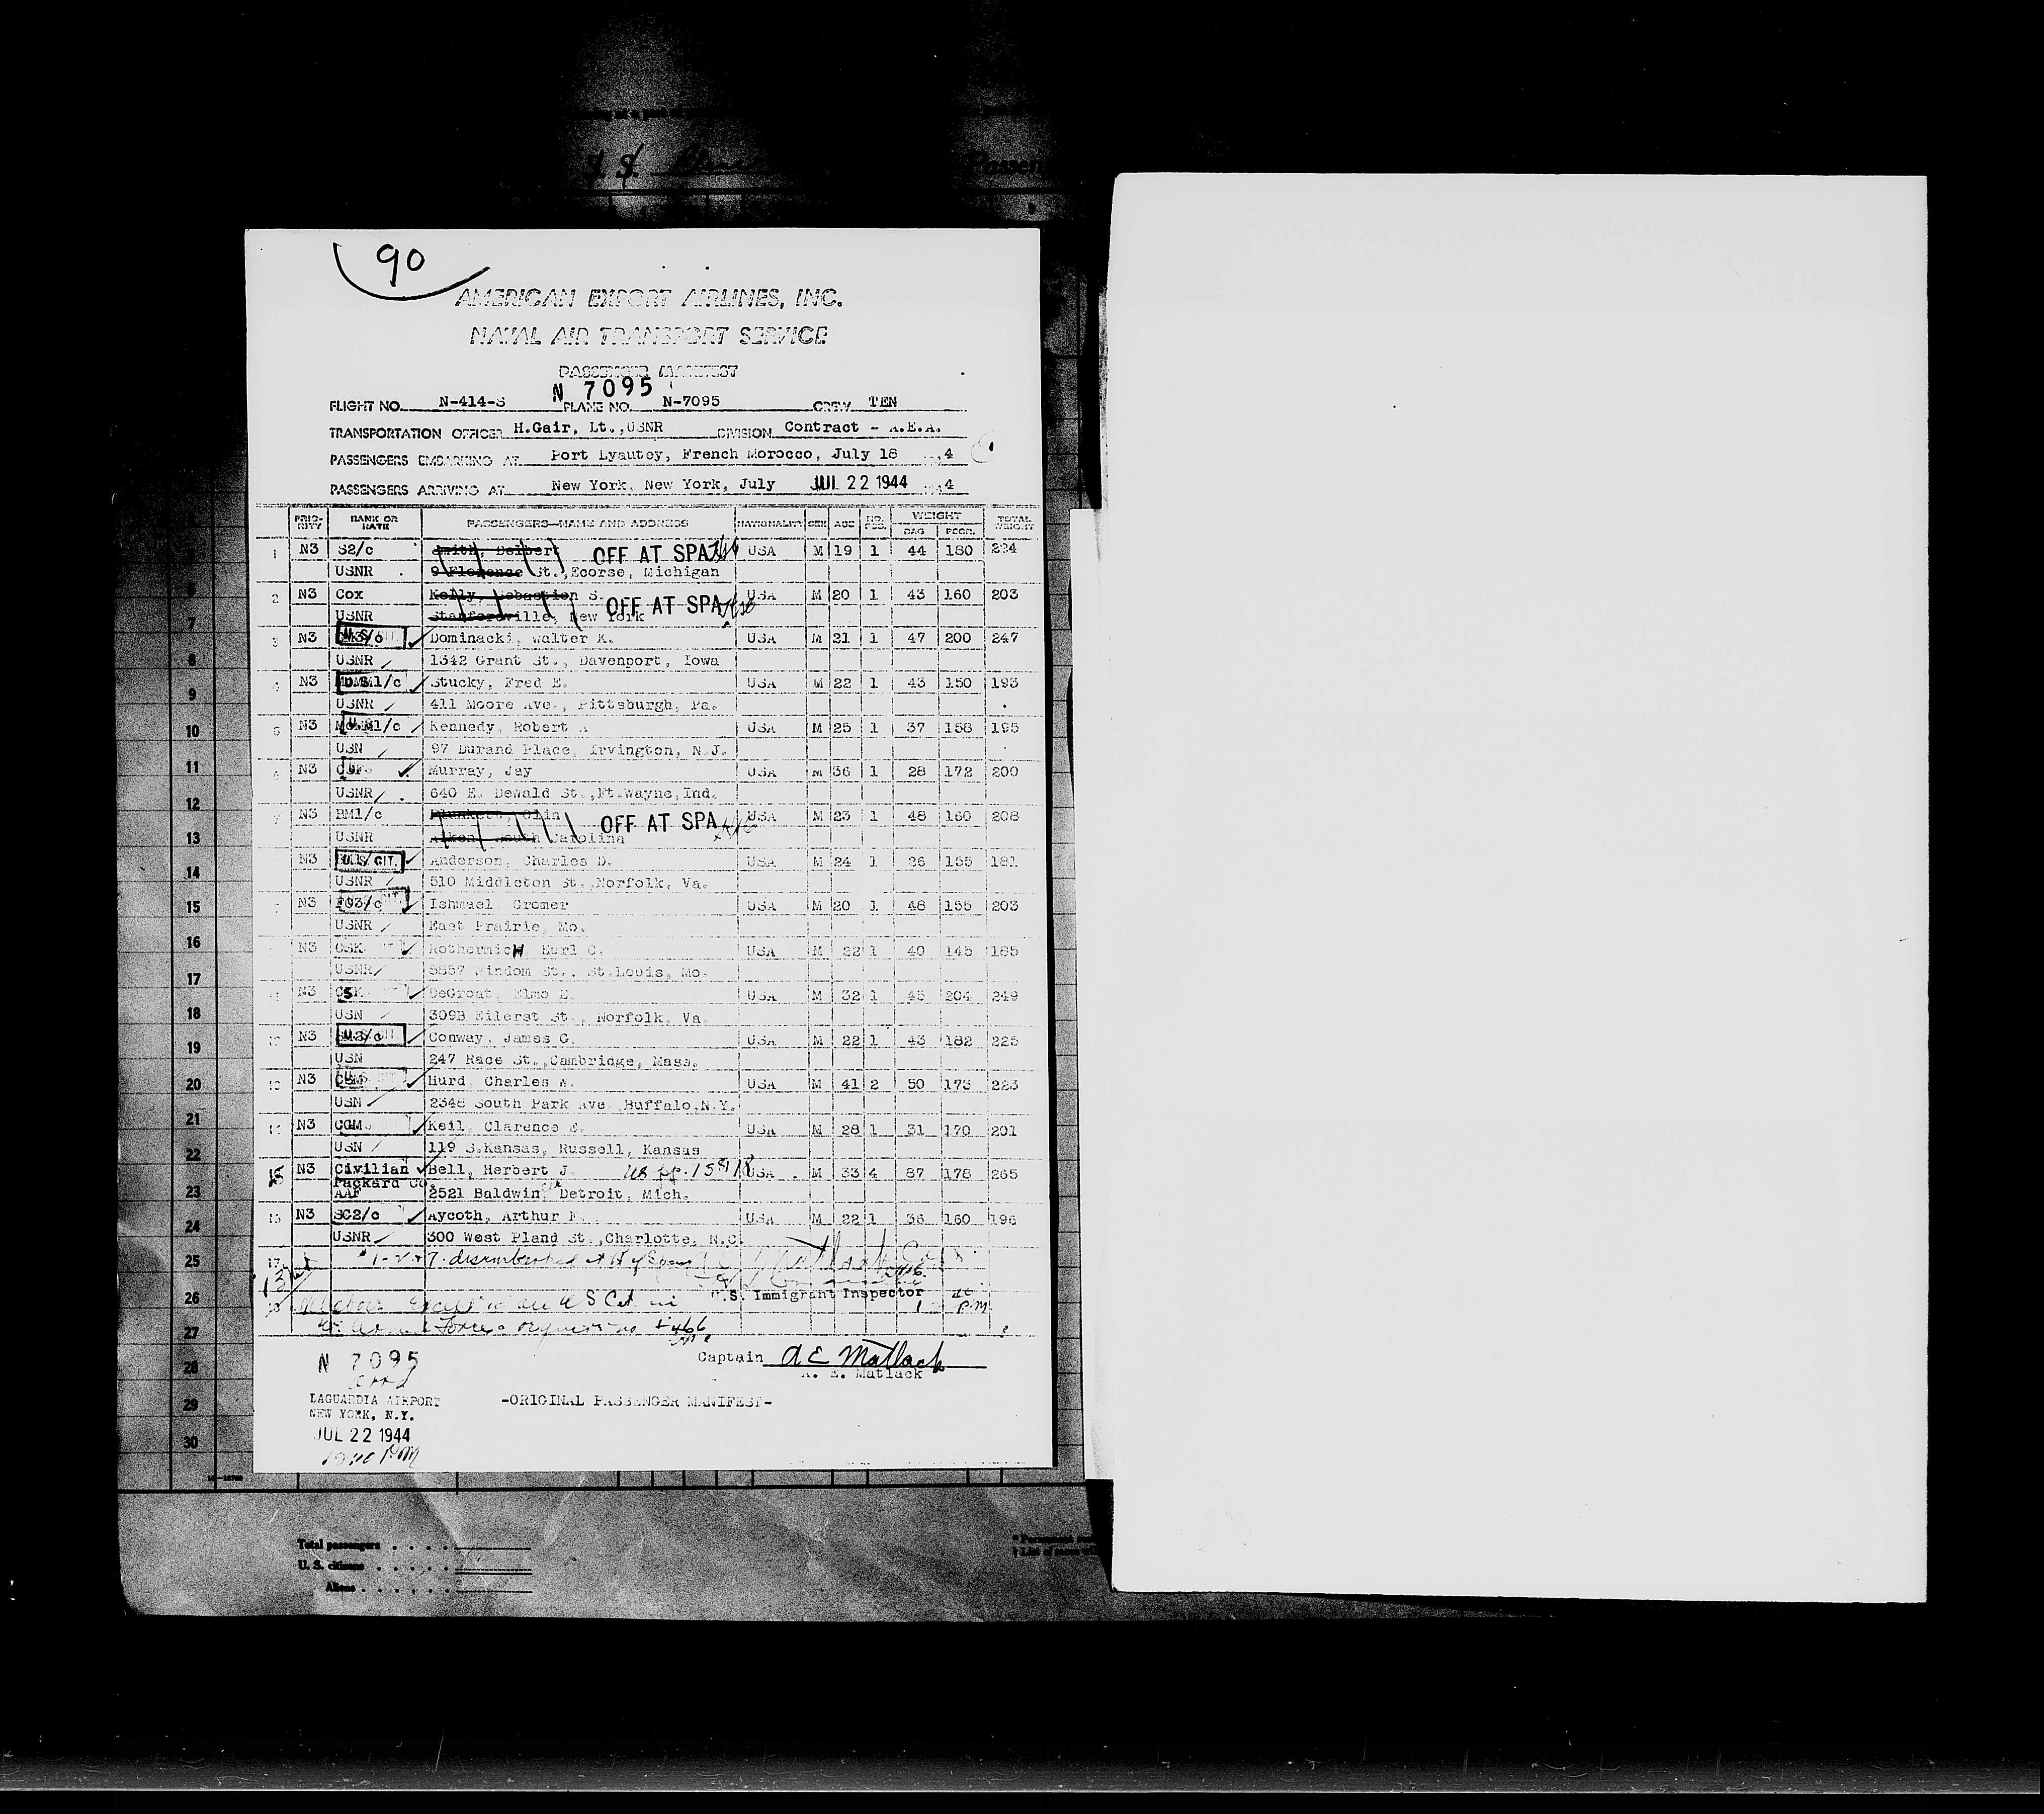 90
AMERICAN EXPORT AIRLINES, INC.
NAVAL AIR TRANSPORT SERVICE
PASSENGER MANIFEST
N 7095
FLIGHT NO. N-414-S PLANE NO. N-7095 CREW TEN
TRANSPORTATION OFFICER H.Gair, Lt.,USNR DIVISION Contract - A.E.A.
PASSENGERS EMBARKING AT Port Lyautey, French Morocco, July 18 4
PASSENGERS ARRIVING AT New York, New York, July JUL 22 1944 4
PRIORITY RANK OR RATE PASSENGERS—NAME AND ADDRESS NATIONALITY SEX AGE NO. PCS. WEIGHT BAG PSGR. TOTAL WEIGHT
1 N3 S2/c Smith, Delbert OFF AT SPA USA M 19 1 44 180 224
USNR 9 Florence St.,Ecorse, Michigan
2 N3 Cox Kelly, Sebastien S. OFF AT SPA USA M 20 1 43 160 203
USNR Stanfordville, New York
3 N3 Dominacki, Walter K. USA M 21 1 47 200 247
USNR 1342 Grant St., Davenport, Iowa
4 N3 1/c Stucky, Fred E. USA M 22 1 43 150 193
USNR 411 Moore Ave., Pittsburgh, Pa.
5 N3 1/c Kennedy, Robert A USA M 25 1 37 158 195
USN 97 Durand Place, Irvington, N.J.
6 N3 Murray, Jay USA M 36 1 28 172 200
USNR 640 E. Dewald St.,Ft.Wayne,Ind.
7 N3 BM1/c Plunkett, Olin OFF AT SPA USA M 23 1 48 160 208
USNR Aiken, South Carolina
N3 U.S. CIT. Anderson, Charles D. USA M 24 1 26 155 181
USNR 510 Middleton St.,Norfolk, Va.
N3 Ishmael, Cromer USA M 20 1 48 155 203
USNR East Prairie, Mo.
N3 CSK RothermicH Earl C. USA M 22 1 40 145 185
USNR 5857 Windom St., St.Louis, Mo.
N3 CSK DeGroat, Elmo E. USA M 32 1 45 204 249
USN 309B Eilerst St., Norfolk, Va.
12 N3 Conway, James G. USA M 22 1 43 182 225
USN 247 Race St.,Cambridge, Mass.
N3 Hurd, Charles A. USA M 41 2 50 173 223
USN 2348 South Park Ave. Buffalo,N.Y.
14 N3 CGM Keil, Clarence E. USA M 28 1 31 170 201
USN 119 S.Kansas, Russell, Kansas
15 N3 Civilian Bell, Herbert J. USA M 33 4 87 178 265
Packard Co.
AAF 2521 Baldwin, Detroit, Mich.
N3 SC2/c Aycoth, Arthur USA M 22 1 36 160 196
USNR 300 West Pland St.,Charlotte, N.C.
7. disembarked at
U.S. Immigrant Inspector
PM
N 7095
Captain A E Matlack
A. E. Matlack
LAGUARDIA AIRPORT
NEW YORK, N.Y.
-ORIGINAL PASSENGER MANIFEST-
JUL 22 1944
PM
6
7
8
9
10
11
12
13
14
15
16
17
18
19
20
21
22
23
24
25
26
27
28
29
30
Total passengers
U. S. citizens
Aliens